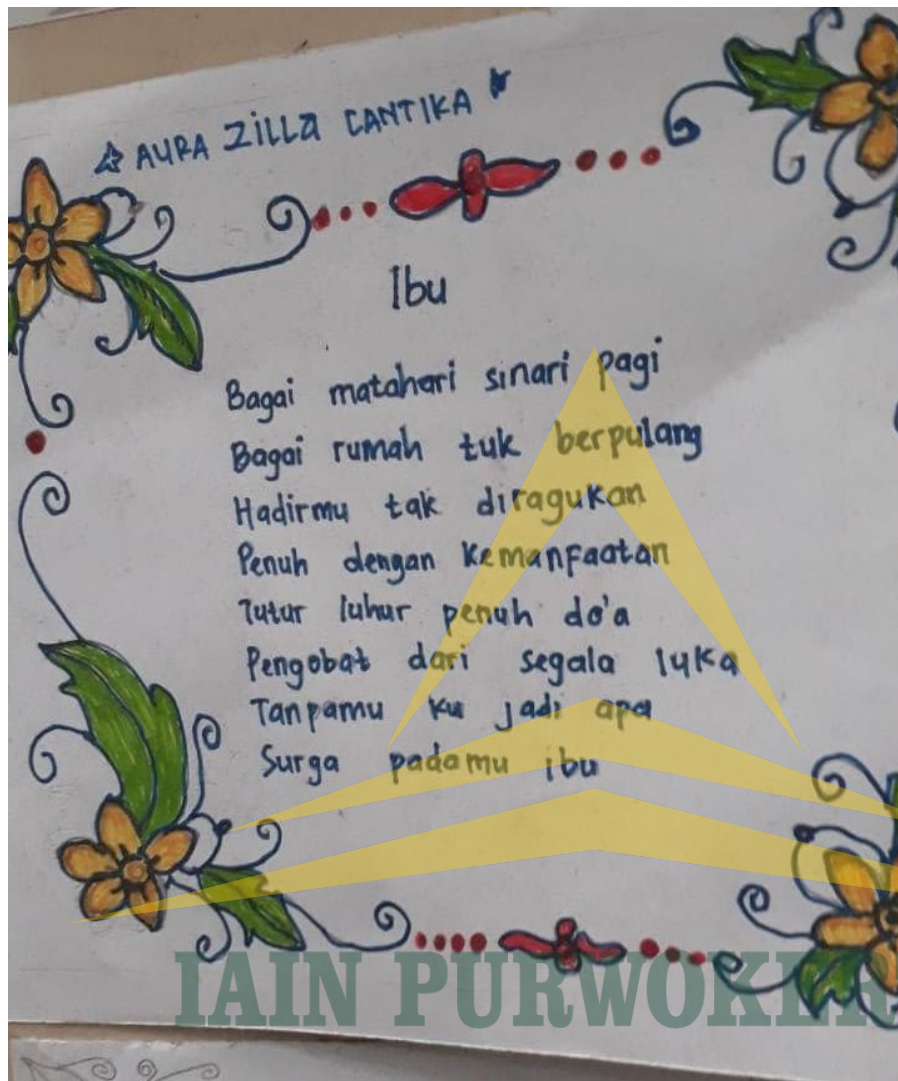 AURA ZiLLa CANTIKA
Ibu
Bagai matahari sinari pagi
Bagai rumah tuk berpulang
Hadirmu tak diragukan
Penuh dengan kemanfaatan
Tutur luhur penuh do'a
Pengobat dari segala luka
Tanpamu ku jadi apa
Surga padamu ibu
IAIN PURWOKER